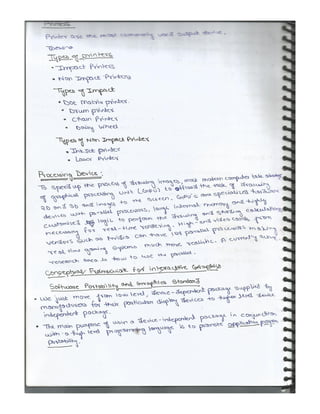 Printers
Printer are the most commonly used output device.
Types of printers
• Impact Printers
• Non Impact Printers
Types of Impact
• Dot Matrix printer.
• Drum printer
• Chain Printer
• Daisy Wheel
Types of Non Impact Printer
• Inkjet printer
• Laser Printer
Processing Device:
To speed up the process of drawing images, most modern computers take advantage
of graphical processing unit (GPU) to offload the task of drawing
2D and 3D and images to the screen. GPU's are specialized hardware
devices with parallel processors, large internal memory and highly
customized logic to perform the drawing and shading calculations
necessary for real-time rendering. High-end video cards from
vendors such as Nvidia can have lots parallel processors making
real time gaming systems much more realistic. A currently
research area is how to use the parallel.
Conceptual Framework for interactive Graphics
Software Portability and Graphics Standard
• We just move from low level, device-dependent package supplied by
manufactures for their particular display devices to higher level device
independent package.
• The main purpose of using a device-independent package in conjunction
with a high level programming language is to promote application program
Portability.